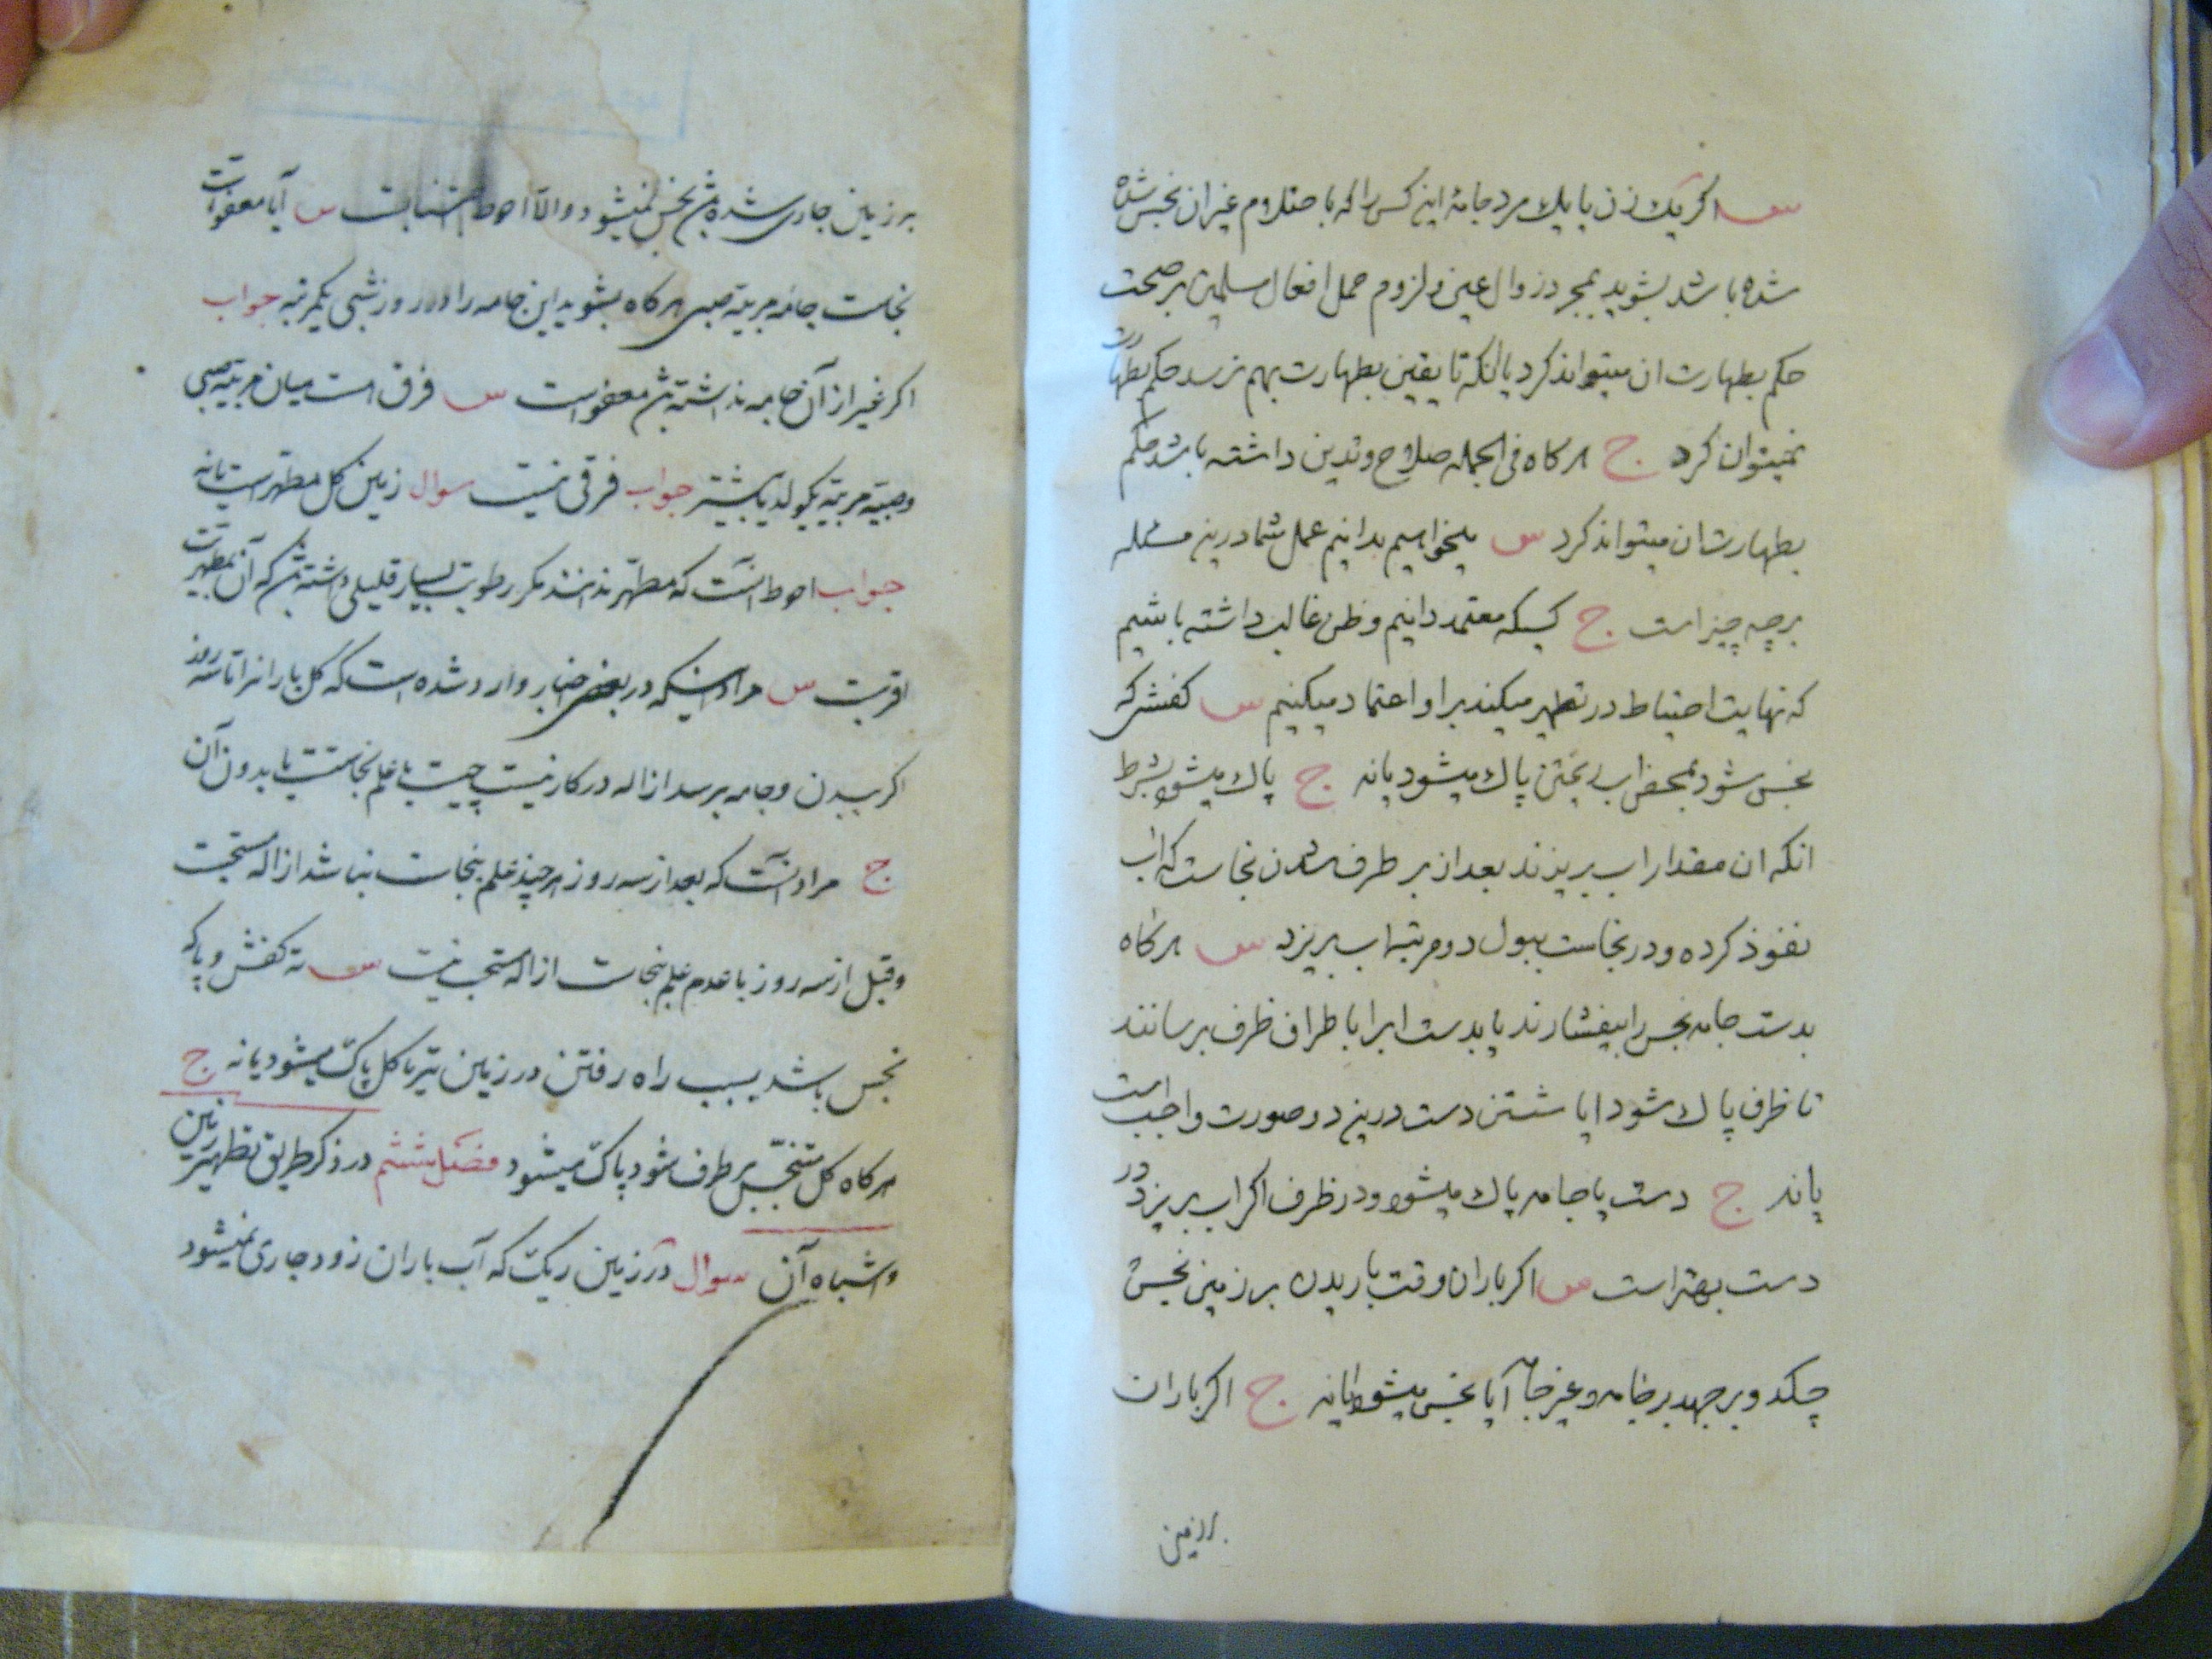 س اکر یک زن یا یک مرد جامهٔ این کس را که باحتلام و غیر ان نجس شده
شده باشد بشوید بمجرد زوال عین و لزوم حمل افعال مسلمین بر صحت
حکم بطهارت ان میتواند کرد یا انکه تا یقین بطهارت بهم نرسد حکم بطهارت
نمیتوان کرد ج هرکاه فی الجمله صلاح و تدین داشته باشد حکم
بطهارت ان میتواند کرد س میخواهیم بدانیم عمل شما درین مسئله
برچه چیز است ج کسیکه معتمد دانیم و ظن غالب داشته باشیم
که نهایت احتیاط در تطهیر میکند بر او اعتماد میکنیم س کفشی که
نجس شود بمحض اب ریختن پاک میشود یانه ج پاک میشود بشرط
انکه ان مقدار اب بریزند بعد از بر طرف شدن نجاست که اب
نفوذ کرده و در نجاست ببول دو مرتبه اب بریزد س هرکاه
بدست جامه نجس را بیفشارند یا بدست ابرا باطراف ظرف برسانند
تا ظرف پاک شود ایا شستن دست درین دو صورت واجب است
یانه ج دست با جامه پاک میشود و در ظرف اکر اب بریزد در
دست بهتر است س اکر باران وقت باریدن بر زمین نجس
چکد و برجهد بر جامه و غیر جامه آیا نجس میشود یانه ج اکر باران
بر زمین
بر زمین جاری شده باشد نجس نمیشود و الا احوط اجتنابست س آیا معفو است
نجاست جامه مربیه صبی هرکاه بشوید این جامه را در روز شبی یکمرتبه جواب
اکر غیر از آن جامه نداشته باشد معفو است س فرق است میان مربیه صبی
و صبیه و مربیه یکولد یا بیشتر جواب فرقی نیست سوال زمین کل مطهر است یانه
جواب احوط انست که مطهر ندانند مکر رطوبت بسیار قلیلی داشته باشد که آن بمطهریت
اقربست س مراد اینکه در بعضی اخبار وارد شده است که کل بارانرا تا سه روز
اکر ببدن و جامه برسد ازاله در کار نیست چیست با علم نجاستست یا بدون آن
ج مراد انست که بعد از سه روز هرچند علم بنجاست نباشد ازاله مستحبست
و قبل از سه روز با عدم علم بنجاست ازاله مستحب نیست س ته کفش و پا که
نجس باشد بسبب راه رفتن در زمین تر با کل پاک میشود یانه ج
هرکاه کل متنجس بر طرف شود پاک میشود فصل ششم در ذکر طریق تطهیر زمین
و اشباه آن سوال در زمین ریک که آب باران زود جاری نمیشود